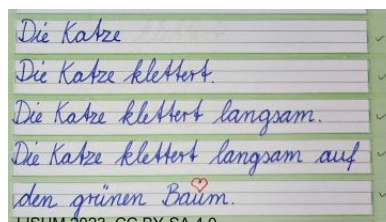 Die Katze
Die Katze klettert.
Die Katze klettert langsam.
Die Katze klettert langsam auf
den grünen Baum.
LISUM 2023, CC BY-SA 4.0